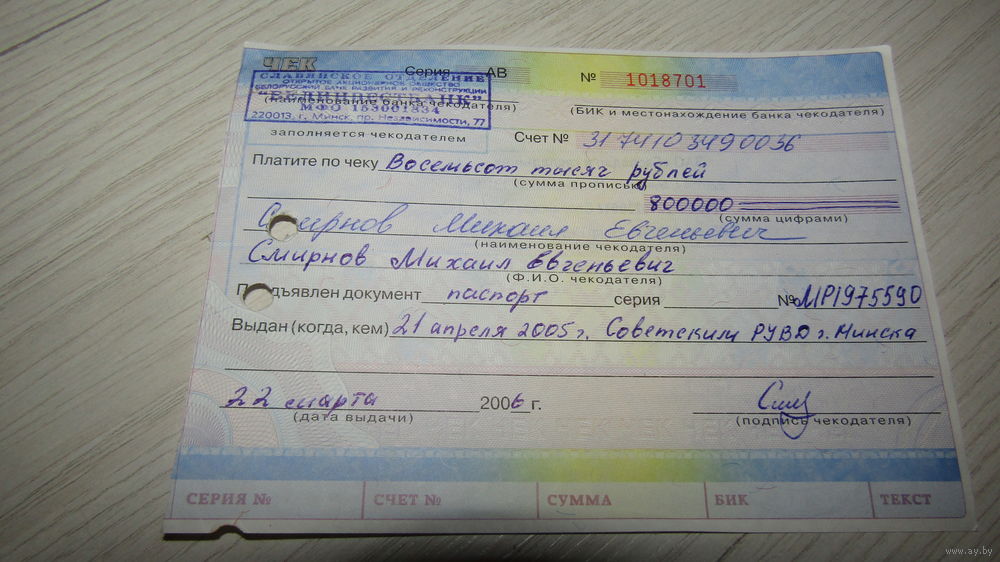 ЧЕК
Серия АВ № 1018701
СЛАВЯНСКОЕ ОТДЕЛЕНИЕ
ОТКРЫТОЕ АКЦИОНЕРНОЕ ОБЩЕСТВО
БЕЛОРУССКИЙ БАНК РАЗВИТИЯ И РЕКОНСТРУКЦИИ
"БЕЛИНВЕСТБАНК"
(наименование банка чекодателя)
МФО 153001834
220013, г. Минск, пр. Независимости, 77
(БИК и местонахождение банка чекодателя)
заполняется чекодателем
Счет № 3174103490036
Платите по чеку Восемьсот тысяч рублей
(сумма прописью)
800000
(сумма цифрами)
Смирнов Михаил Евгеньевич
(наименование чекодателя)
Смирнов Михаил Евгеньевич
(Ф.И.О. чекодателя)
Предъявлен документ паспорт серия № МР1975590
Выдан (когда, кем) 21 апреля 2005г. Советским РУВД г. Минска
22 марта 2006 г.
(дата выдачи)
(подпись чекодателя)
СЕРИЯ № СЧЕТ № СУММА БИК ТЕКСТ
www.ay.by